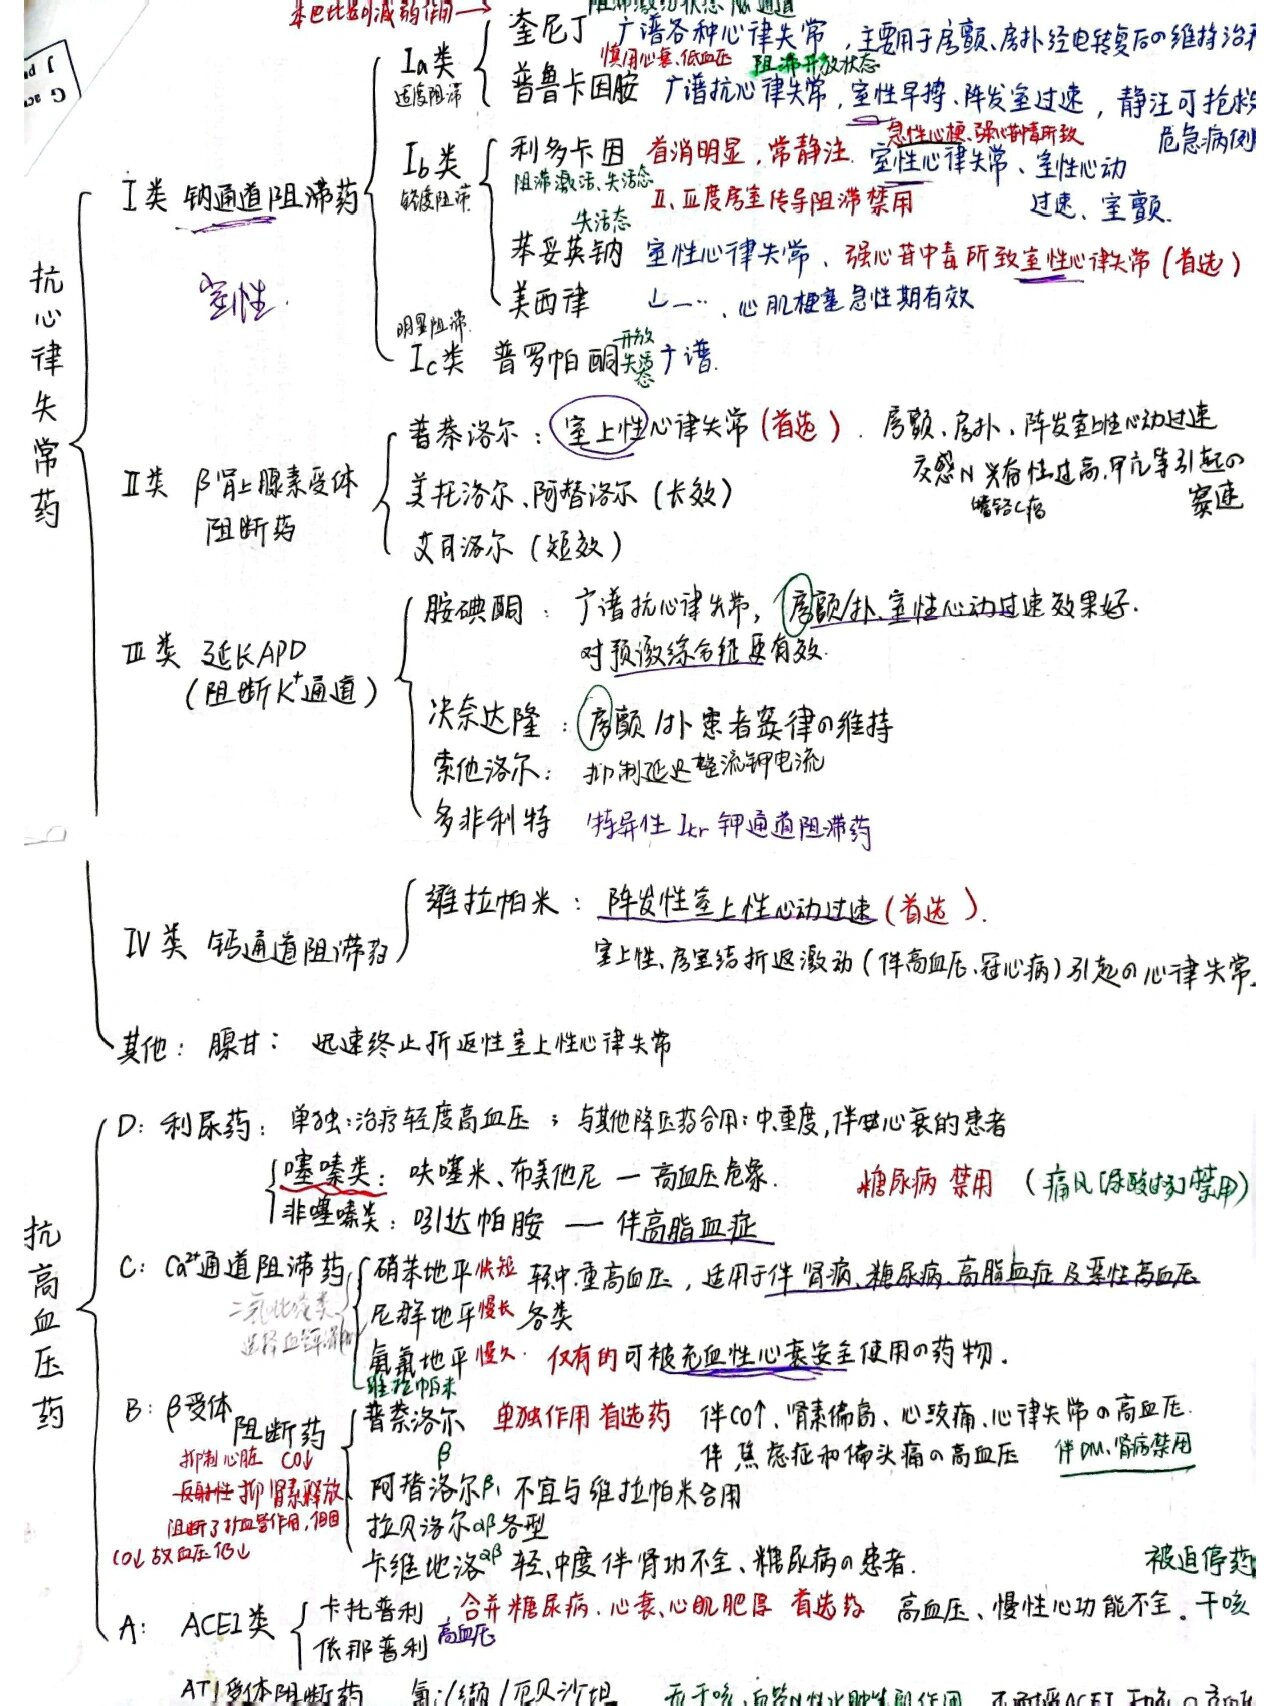 苯巴比妥可减弱作用→
阻滞激活状态 钠通道
奎尼丁 广谱各种心律失常，主要用于房颤、房扑经电转复后の维持治疗
Ia类
适度阻滞
慎用心衰、低血压 阻滞开放状态
普鲁卡因胺 广谱抗心律失常，室性早搏、阵发室过速，静注可抢救
危急病例
急性心梗、强心苷中毒所致
Ib类
轻度阻滞
利多卡因 首消明显，常静注. 室性心律失常、室性心动
阻滞激活、失活态
Ⅱ、Ⅲ度房室传导阻滞禁用 过速、室颤.
Ⅰ类 钠通道阻滞药
失活态
苯妥英钠 室性心律失常、强心苷中毒所致室性心律失常(首选)
室性.
美西律 、心肌梗塞急性期有效
明显阻滞.
Ic类 普罗帕酮 开放 失活态 广谱.
抗心律失常药
普萘洛尔：室上性心律失常(首选). 房颤、房扑、阵发室上性心动过速
交感N兴奋性过高，甲亢等引起の
嗜铬C瘤 窦速
Ⅱ类 β肾上腺素受体
阻断药
美托洛尔、阿替洛尔(长效)
艾司洛尔(短效)
胺碘酮：广谱抗心律失常，房颤/扑、室性心动过速效果好.
对预激综合征更有效.
Ⅲ类 延长APD
(阻断K⁺通道)
决奈达隆：房颤/扑患者窦律の维持
索他洛尔：抑制延迟整流钾电流
多非利特 特异性Ikr钾通道阻滞药
维拉帕米：阵发性室上性心动过速(首选).
Ⅳ类 钙通道阻滞药
室上性、房室结折返激动(伴高血压、冠心病)引起の心律失常.
其他：腺苷：迅速终止折返性室上性心律失常
抗高血压药
D：利尿药：单独:治疗轻度高血压；与其他降压药合用:中.重度,伴心衰的患者
噻嗪类：呋噻米、布美他尼—高血压危象. 糖尿病禁用 (痛风[尿酸↑]禁用)
非噻嗪类：吲达帕胺—伴高脂血症
C：Ca²⁺通道阻滞药
硝苯地平 快短 轻.中.重高血压，适用于伴肾病、糖尿病、高脂血症及恶性高血压
尼群地平 慢长 各类
氨氯地平 慢久. 仅有的可被充血性心衰安全使用の药物.
维拉帕米
B：β受体
阻断药
普萘洛尔 单独作用首选药 伴CO↑、肾素偏高、心绞痛、心律失常の高血压.
β 伴焦虑症和偏头痛の高血压 伴DM、肾病禁用
抑制心脏 CO↓
反射性 抑肾素释放
阻断了扩血管作用，但因
CO↓故血压仍↓
阿替洛尔β₁ 不宜与维拉帕米合用
拉贝洛尔αβ各型
卡维地洛αβ 轻、中度伴肾功不全、糖尿病の患者.
被迫停药
A：ACEI类
卡托普利 合并糖尿病.心衰、心肌肥厚 首选药 高血压、慢性心功能不全. 干咳
依那普利 高血压
AT1受体阻断药 氯/缬/厄贝沙坦